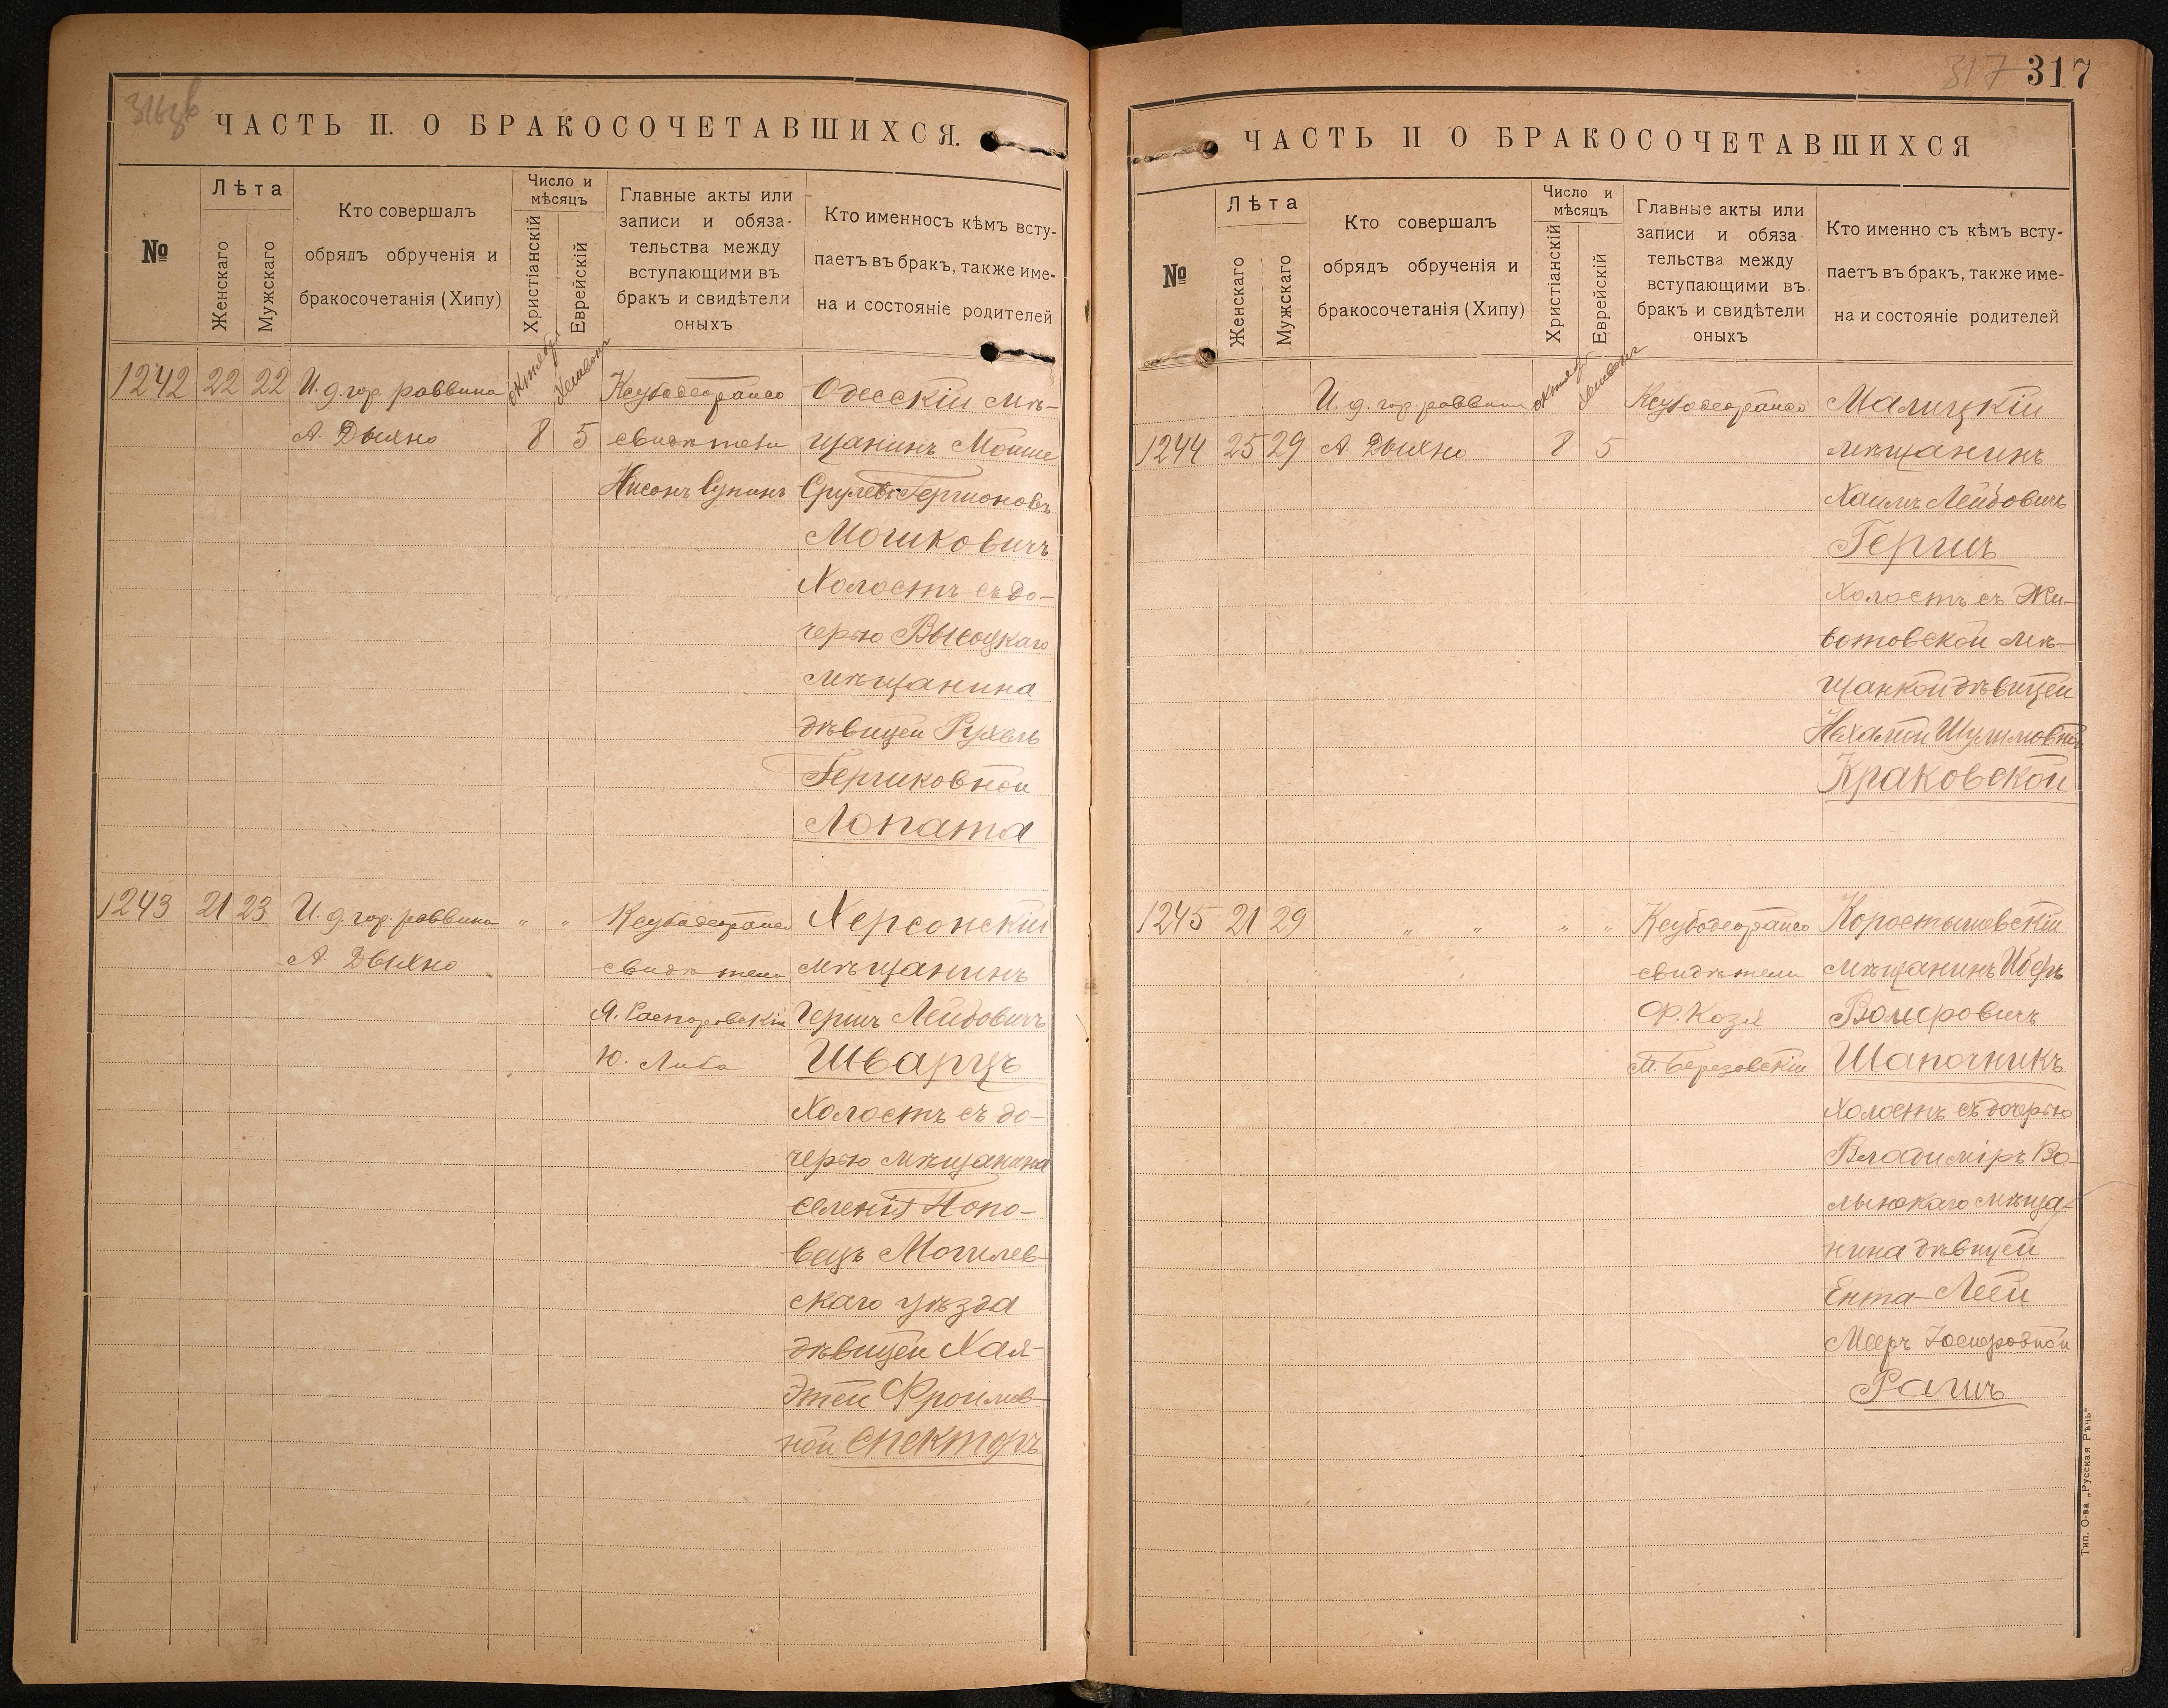 316об
ЧАСТЬ II. О БРАКОСОЧЕТАВШИХСЯ.
№
Лѣта
Женскаго
Мужскаго
Кто совершалъ
обрядъ обрученія и
бракосочетанія (Хипу)
Число и
мѣсяцъ
Христіанскій
Еврейскій
Главные акты или
записи и обяза-
тельства между
вступающими въ
бракъ и свидѣтели
оныхъ
Кто именносъ кѣмъ всту-
паетъ въ бракъ, также име-
на и состояніе родителей
1242 22 22 И. д. гор. раввина
А. Дыхно
октября 8
Хешванъ 5
свидѣтели
Одесскій мѣ-
щанинъ Мойше
Срулевъ Гершоновъ
Мошковичъ
Холостъ съ до-
черью Высоцкаго
мѣщанина
дѣвицей Рухель
Гершковной
Лопата
1243 21 23 И. д. гор. раввина " "
А. Дыхно
свидѣтели
Ю. Либа
Херсонскій
мѣщанинъ
Гершъ Лейбовичъ
Шварцъ
Холостъ съ до-
черью мѣщанина
селенія Попо-
вецъ Могилев-
скаго уѣзда
дѣвицей Хая-
Этей Фроимов-
ной Спекторъ
317 317
ЧАСТЬ II О БРАКОСОЧЕТАВШИХСЯ
№
Лѣта
Женскаго
Мужскаго
Кто совершалъ
обрядъ обрученія и
бракосочетанія (Хипу)
Число и
мѣсяцъ
Христіанскій
Еврейскій
Главные акты или
записи и обяза
тельства между
вступающими въ
бракъ и свидѣтели
оныхъ
Кто именно съ кѣмъ всту-
паетъ въ бракъ, также име-
на и состояніе родителей
И. д. гор. раввина
1244 25 29 А. Дыхно
октября 8
Хешванъ 5
Малицкій
мѣщанинъ
Хаимъ Лейбовичъ
Гершъ
Холостъ съ Жи-
вотовской мѣ-
щанкой дѣвицей
Нехамой Шулимовной
Краковской
1245 21 29 " " " "
свидѣтели
Ф. Козя
М. Березовскій
Коростышевскій
мѣщанинъ
Шапочникъ
Холостъ съ дочерью
Владиміръ Во-
лынскаго мѣща-
нина дѣвицей
Ента-Леей
Рашъ
Тип. О-ва „Русская Рѣчь"